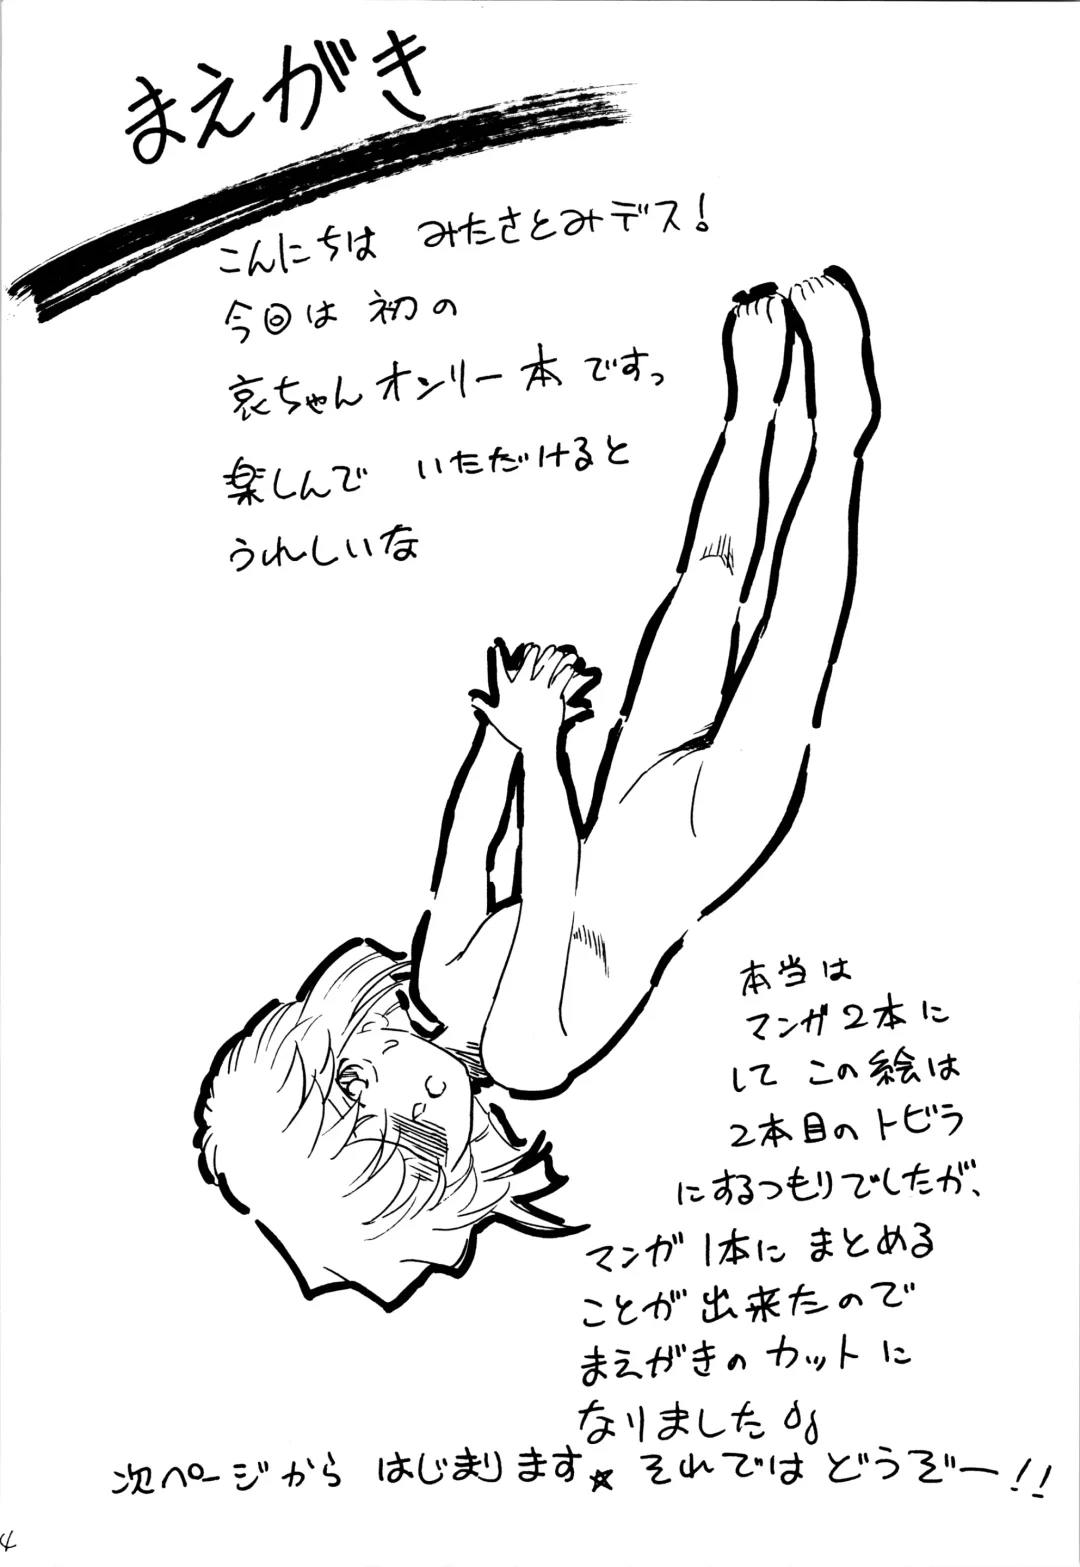 まえがき
こんにちは みたさとみデス!
今回は 初の
哀ちゃんオンリー本ですっ
楽しんで いただけると
うれしいな
本当は
マンガ2本に
して この絵は
2本目のトビラ
にするつもりでしたが、
マンガ1本に まとめる
ことが出来たので
まえがきのカットに
なりました
次ページから はじまります☆ それでは どうぞー!!
4